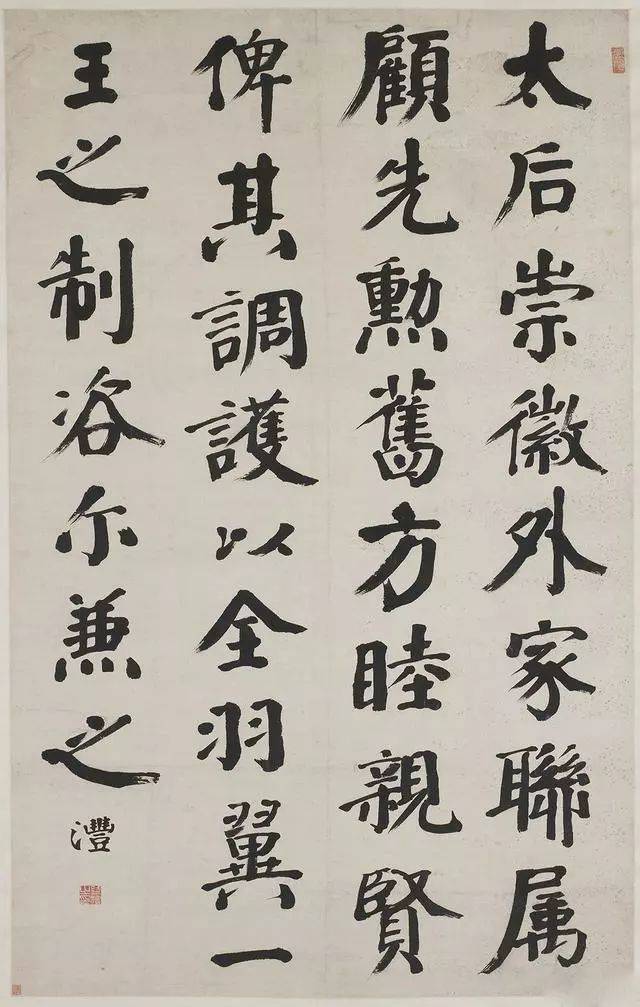 太后崇徽外家聯属
顧先勲舊方睦親賢
俾其調護以全羽翼一
王之制咨尒兼之
灃